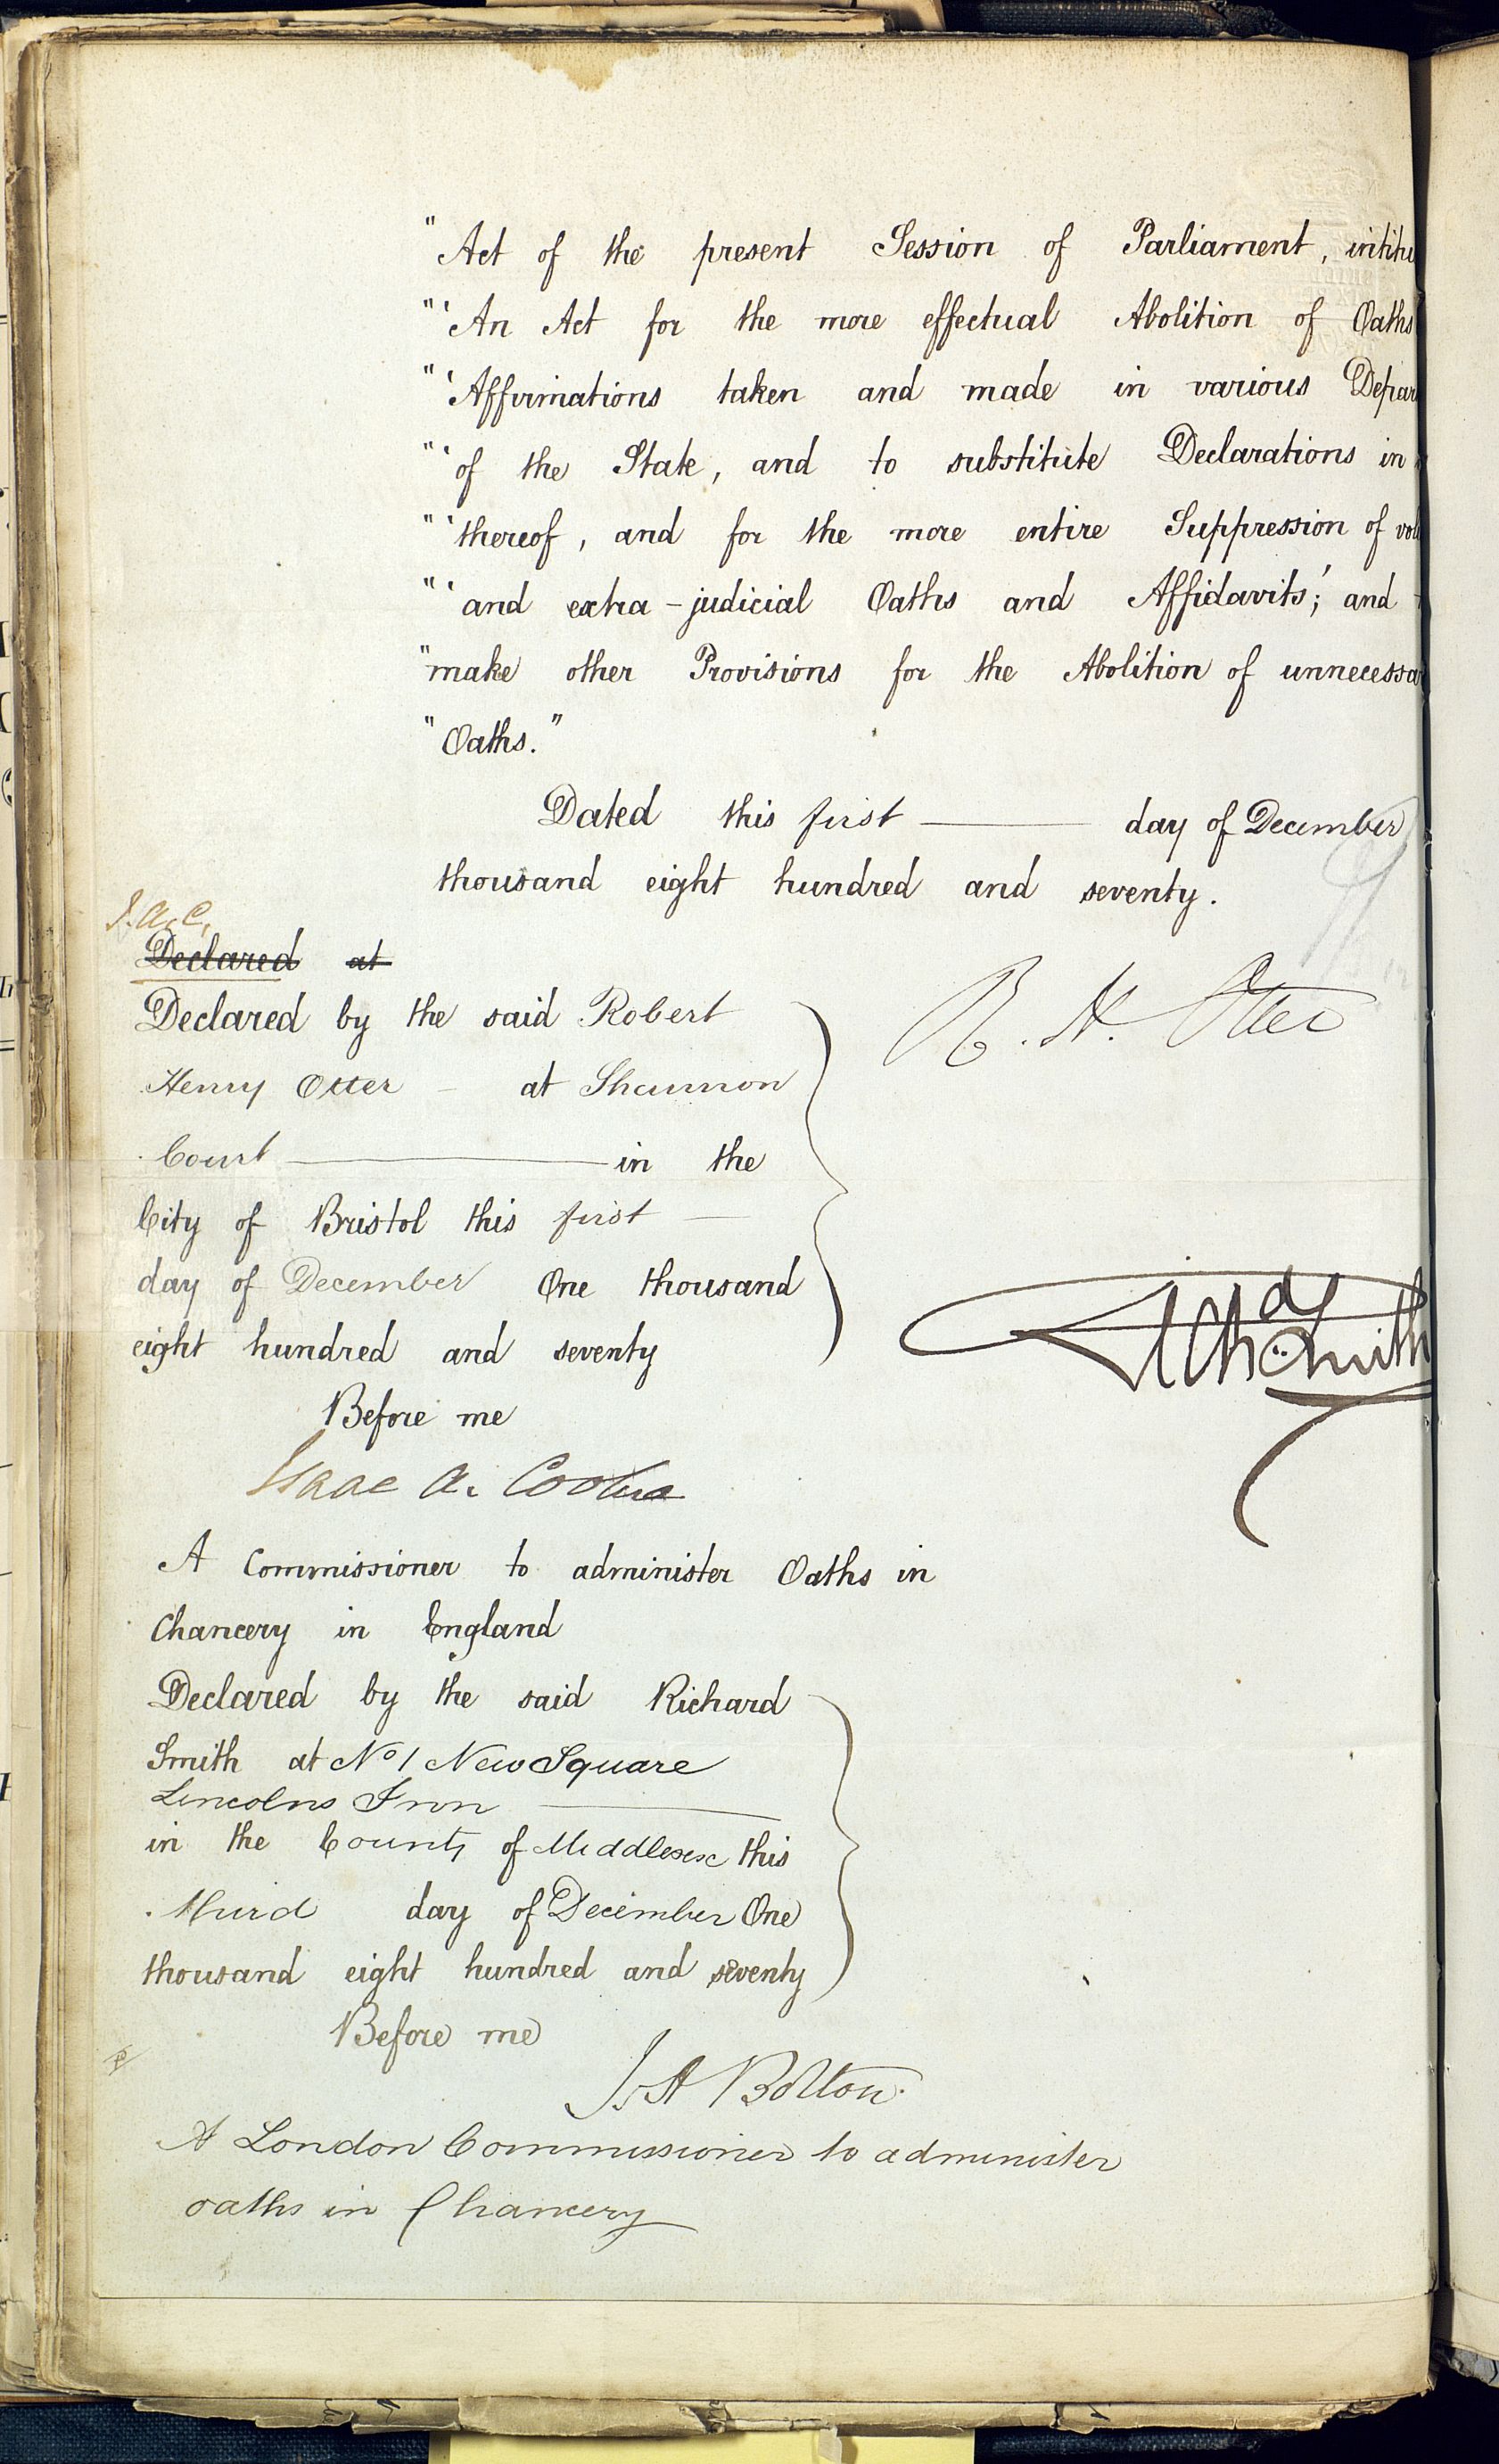 " Act of the present Session of Parliament, intitu
"' An Act for the more effectual Abolition of Oaths
"' Affirmations taken and made in various Depar
"' of the State, and to substitute Declarations in
"' thereof, and for the more entire Suppression of vol
"' and extra-judicial Oaths and Affidavits'; and
" make other Provisions for the Abolition of unnecessa
" Oaths."
Dated this first day of December
thousand eight hundred and seventy.
I. A. C.
Declared at
Declared by the said Robert
Henry Otter at Shannon
Court in the
City of Bristol this first
day of December One thousand
eight hundred and seventy
R. H. Otter
Smith
Before me
Isaac A. Cooke
A Commissioner to administer Oaths in
Chancery in England
Declared by the said Richard
Smith at No 1 New Square
Lincolns Inn
in the County of Middlesex this
third day of December One
thousand eight hundred and seventy
Before me
J. A Bolton.
A London Commissioner to administer
oaths in Chancery